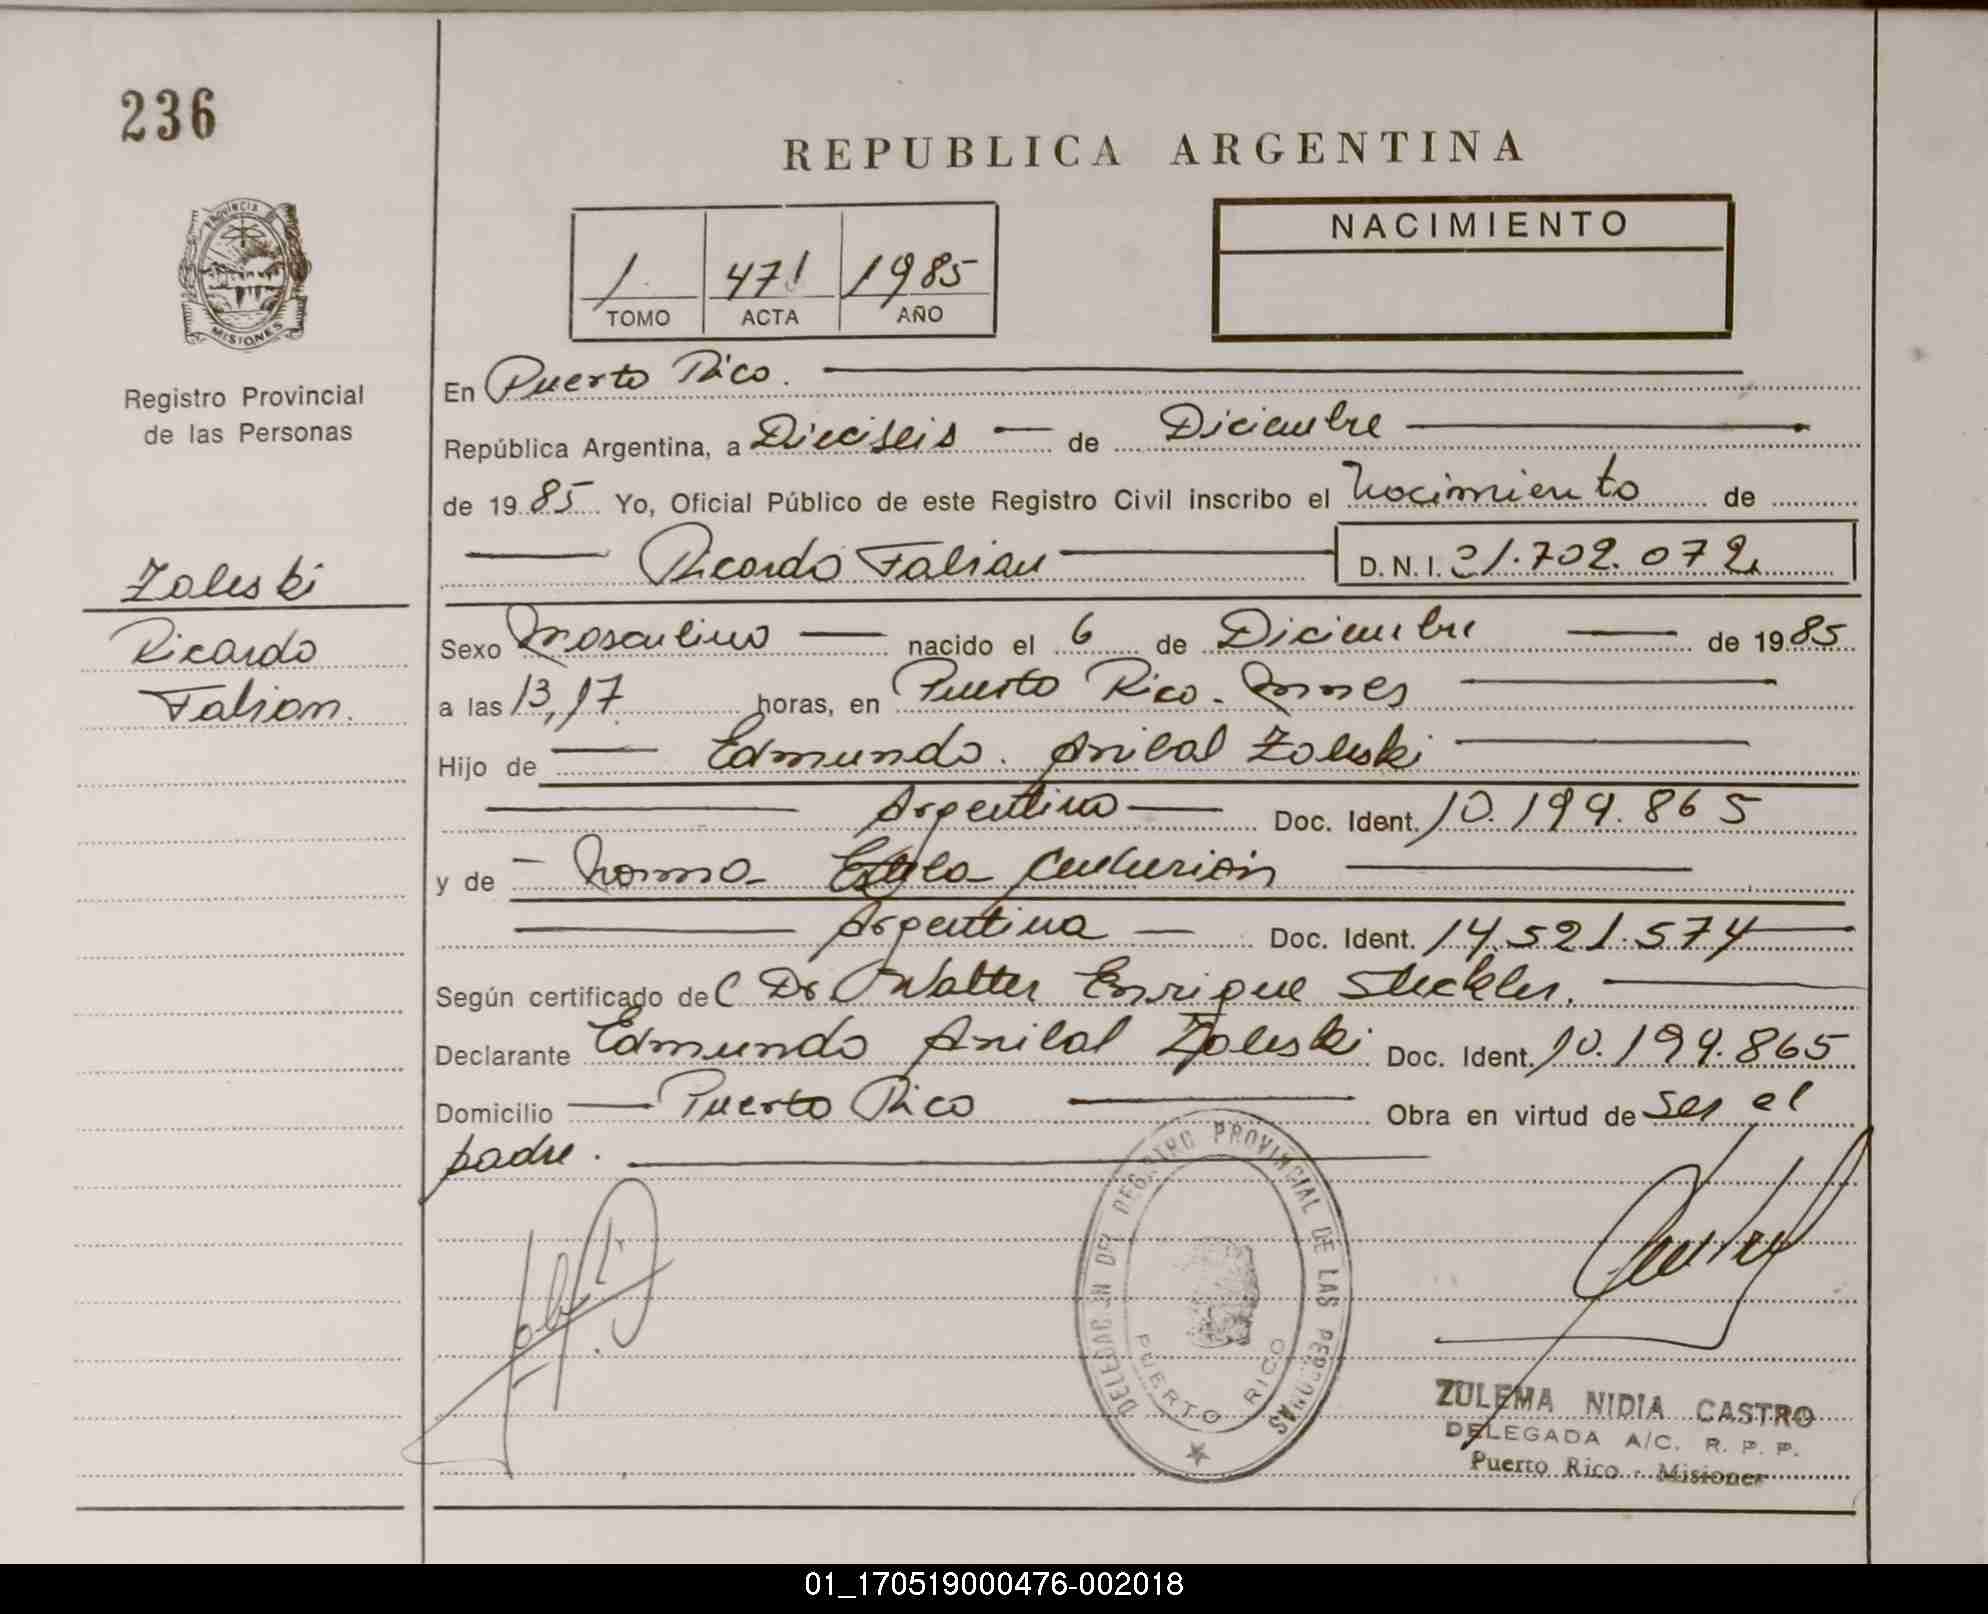 236
REPUBLICA ARGENTINA
PROVINCIA DE
MISIONES
Registro Provincial
de las Personas
1 471 1985
TOMO ACTA AÑO
NACIMIENTO
En Puerto Rico.
República Argentina, a Dieciseis de Diciembre
de 1985 Yo, Oficial Público de este Registro Civil inscribo el Nacimiento de
Ricardo Fabian D.N.I. 31.702.072
Zaleski
Ricardo
Fabian.
Sexo Masculino nacido el 6 de Diciembre de 1985
a las 13,17 horas, en Puerto Rico - Mnes
Hijo de Edmundo Anibal Zaleski
Argentino Doc. Ident. 10.199.865
y de Norma Estela Centurión
Argentina Doc. Ident. 14.521.574
Según certificado del Dr Walter Enrique Steckler.
Declarante Edmundo Anibal Zaleski Doc. Ident. 10.199.865
Domicilio Puerto Rico Obra en virtud de ser el
padre.
DELEGACION DEL REGISTRO PROVINCIAL DE LAS PERSONAS
PUERTO RICO
ZULEMA NIDIA CASTRO
DELEGADA A/C. R. P. P.
Puerto Rico - Misiones
01_170519000476-002018